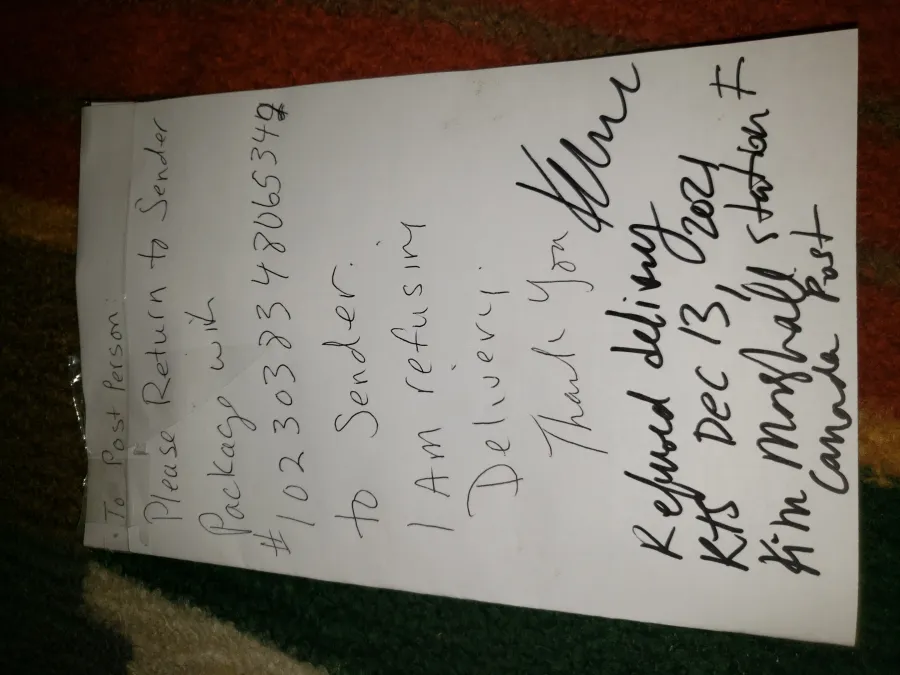 . To Post Person:
Please Return to Sender
Package with
#1023038348065342
to Sender.
I Am refusing
Delivery.
Thank You
Refused delivery
RTS Dec 13, 2021
Kim Marshall Station F
Canada Post